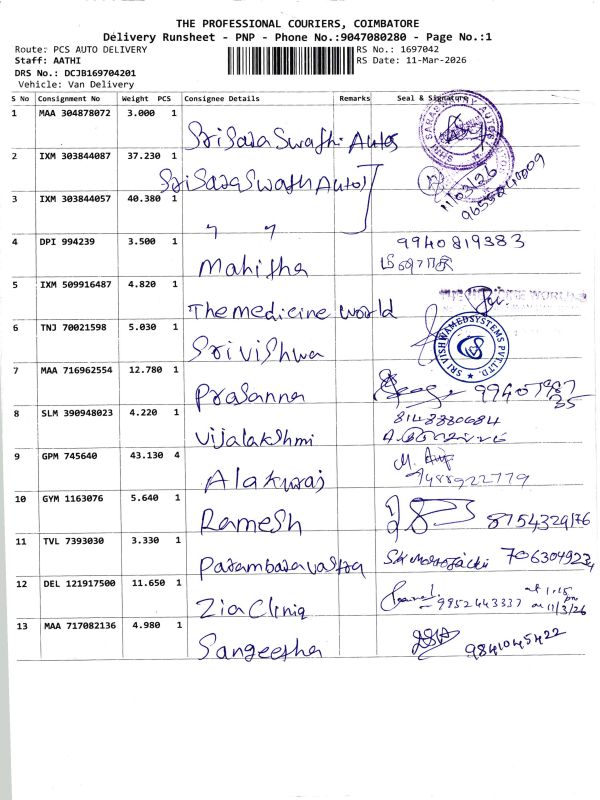 THE PROFESSIONAL COURIERS, COIMBATORE
Delivery Runsheet - PNP - Phone No.:9047080280 - Page No.:1
Route: PCS AUTO DELIVERY RS No.: 1697042
Staff: AATHI RS Date: 11-Mar-2026
DRS No.: DCJB169704201
Vehicle: Van Delivery
S No Consignment No Weight PCS Consignee Details Remarks Seal & Signature
1 MAA 304878072 3.000 1 Sri Sara Swathi Autos
2 IXM 303844087 37.230 1 Sri Sara Swathi Autos 11/03/26
3 IXM 303844057 40.380 1 " "
4 DPI 994239 3.500 1 Mahitha 9940819383
5 IXM 509916487 4.820 1 The medicine world
6 TNJ 70021598 5.030 1 Sri Vishwa SRI VISHWAMEDSYSTEMS PVT.LTD.
7 MAA 716962554 12.780 1 Prasanna
8 SLM 390948023 4.220 1 Vijalakshmi 8148880684
9 GPM 745640 43.130 4 Alakuraj 9488922779
10 GYM 1163076 5.640 1 Ramesh 8754329176
11 TVL 7393030 3.330 1 Parambaravastra
12 DEL 121917500 11.650 1 Zia Cliniq 9952443337 at 1:15 pm on 11/3/26
13 MAA 717082136 4.980 1 Sangeetha 9841045422